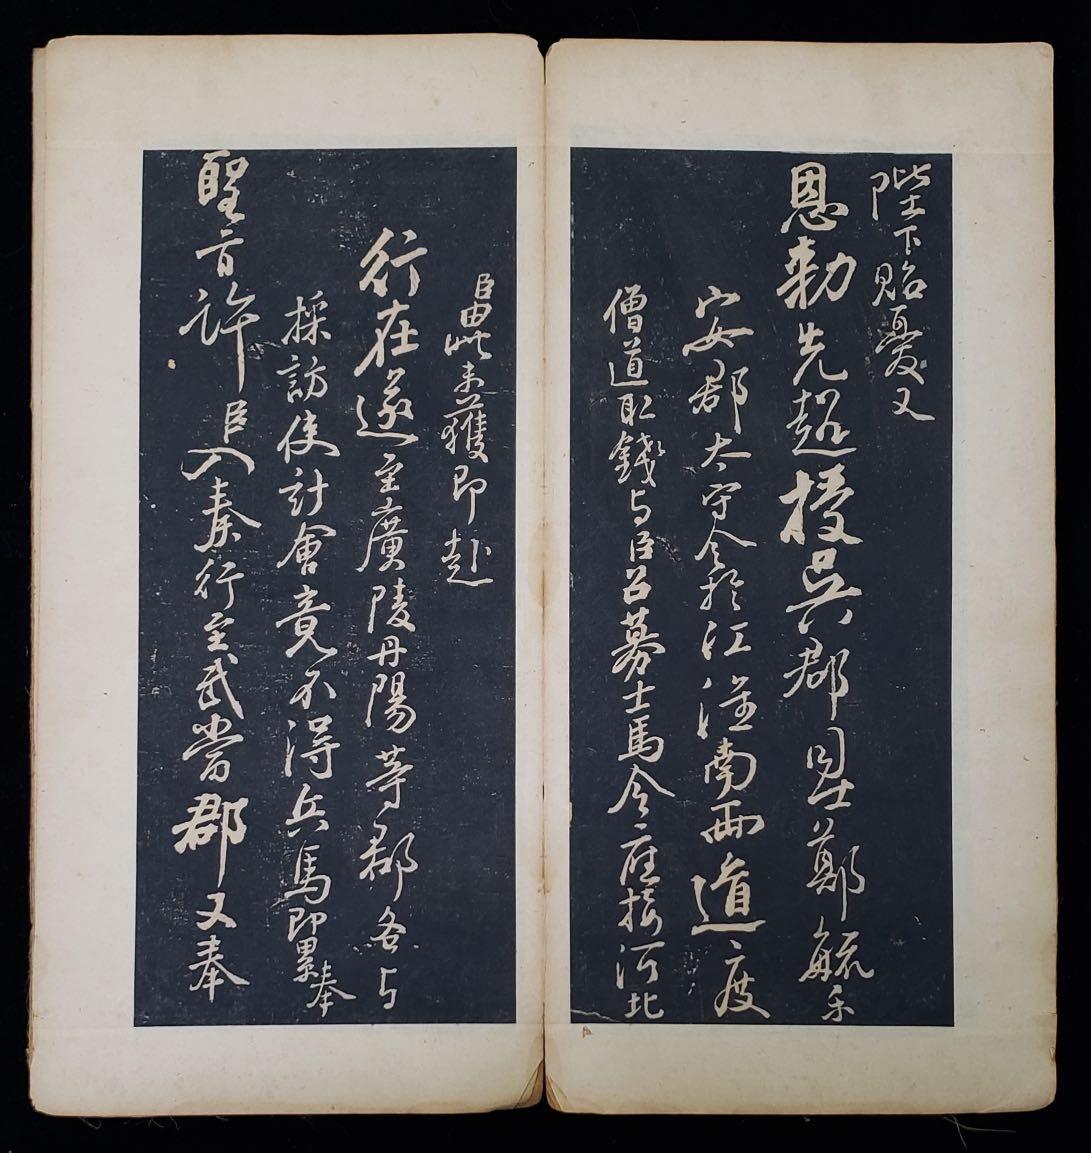 陛下貽憂又
恩勅先超授吳郡司士鄭毓樂
安郡太守令於江淮南兩道度
僧道取錢与臣召募士馬令應接河北
臣由此未獲即赴
行在遂至廣陵丹陽等郡各与
採訪使計會竟不得兵馬即累奉
聖旨許臣入奏行至武當郡又奉